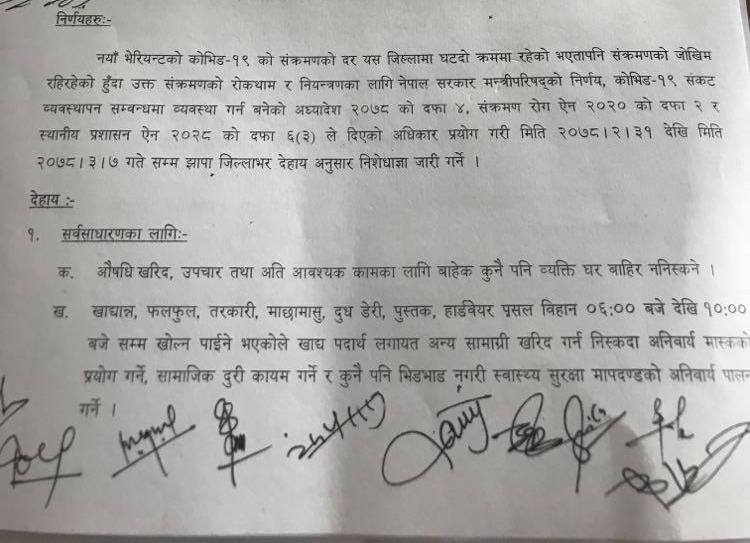 निर्णयहरुः-
नयाँ भेरियन्टको कोभिड-१९ को संक्रमणको दर यस जिल्लामा घटदो क्रममा रहेको भएतापनि संक्रमणको जोखिम
रहिरहेको हुँदा उक्त संक्रमणको रोकथाम र नियन्त्रणका लागि नेपाल सरकार मन्त्रीपरिषद्को निर्णय, कोभिड-१९ संकट
व्यवस्थापन सम्बन्धमा व्यवस्था गर्न बनेको अध्यादेश २०७८ को दफा ४, संक्रमण रोग ऐन २०२० को दफा २ र
स्थानीय प्रशासन ऐन २०२८ को दफा ६(३) ले दिएको अधिकार प्रयोग गरी मिति २०७८।२।३१ देखि मिति
२०७८।३।७ गते सम्म झापा जिल्लाभर देहाय अनुसार निशेधाज्ञा जारी गर्ने ।
देहाय :-
१. सर्वसाधारणका लागिः-
क. औषधि खरिद, उपचार तथा अति आवश्यक कामका लागि बाहेक कुनै पनि व्यक्ति घर बाहिर ननिस्कने ।
ख. खाद्यान्न, फलफुल, तरकारी, माछामासु, दुध डेरी, पुस्तक, हार्डवेयर पसल विहान ०६:०० बजे देखि १०:००
बजे सम्म खोल्न पाईने भएकोले खाद्य पदार्थ लगायत अन्य सामाग्री खरिद गर्न निस्कदा अनिवार्य मास्कको
प्रयोग गर्ने, सामाजिक दुरी कायम गर्ने र कुनै पनि भिडभाड नगरी स्वास्थ्य सुरक्षा मापदण्डको अनिवार्य पालन
गर्ने ।